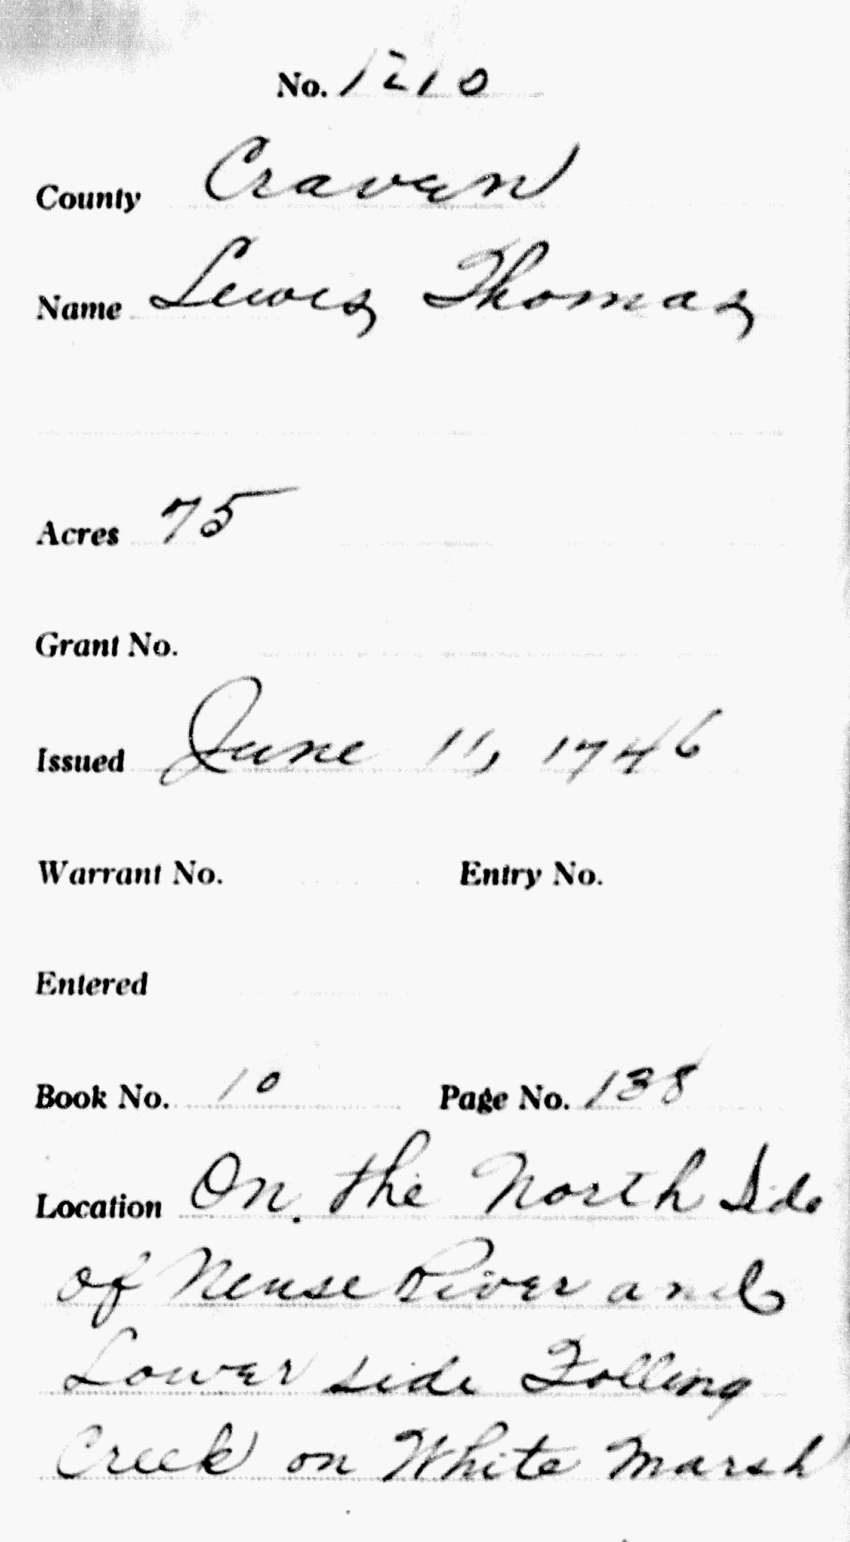 No. 1210
County Craven
Name Lewis Thomas
Acres 75
Grant No.
Issued June 11, 1746
Warrant No. Entry No.
Entered
Book No. 10 Page No. 138
Location On the North Side
of Neuse River and
Lower side Folling
Creek on White Marsh